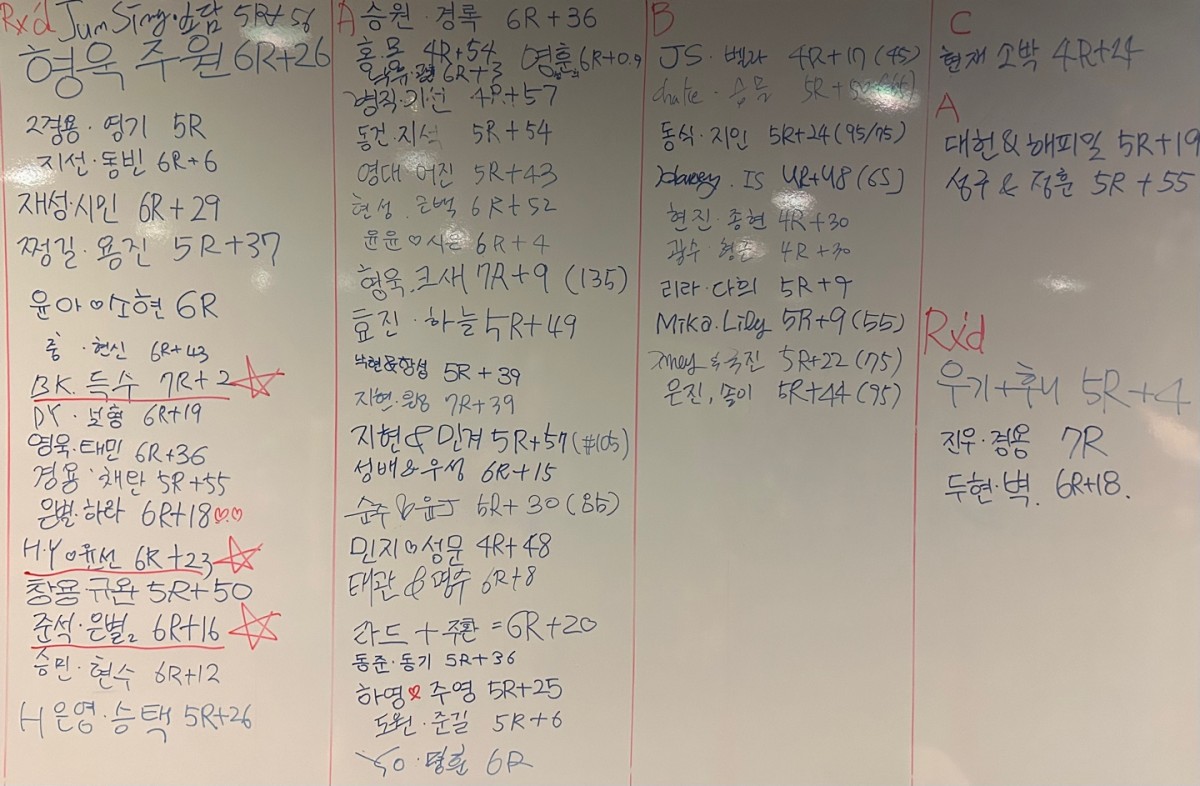 Rx'd
JumSing·소담 5R+56
형욱 주원 6R+26
고경용·영기 5R
지선·동빈 6R+6
재성·시민 6R+29
쩡길·용진 5R+37
윤아♡이소현 6R
중·현신 6R+43
BK. 득수 7R+2
DY·보형 6R+19
영욱·태민 6R+36
경용·채란 5R+55
은별·하라 6R+18♡♡
H.Y♡윤선 6R+23
창용 규완 5R+50
준석·은별2 6R+16
승민·현수 6R+12
H은영·승택 5R+26
A
승원·경록 6R+36
홍목 4R+54
영훈 6R+0.9
6R+3
명직·기선 4R+57
동건·지석 5R+54
영대 어진 5R+43
현성.은백 6R+52
윤윤♡시은 6R+4
형욱.크새 7R+9 (135)
효진·하늘 5R+49
5R+39
지현· 7R+39
지현&민계 5R+57(#105)
성배&우성 6R+15
순주&윤J 5R+30(85)
민지♡성문 4R+48
태관&명수 6R+8
라드+주환=6R+20
동준·동기 5R+36
하영♡주영 5R+25
도원·준길 5R+6
명훈 6R
B
JS·벨라 4R+17(45)
5R+
동식·지인 5R+24(95/75)
IS 4R+48(65)
현진·종현 4R+30
광수·형준 4R+30
리라·다희 5R+9
Mika.Lily 5R+9(55)
&국진 5R+22(75)
은진, 송이 5R+44(95)
C
현재 소박 4R+24
A
대헌&해피일 5R+19
성구&정훈 5R+55
Rx'd
우기+후니 5R+4
진우·경용 7R
두현·벽. 6R+18.